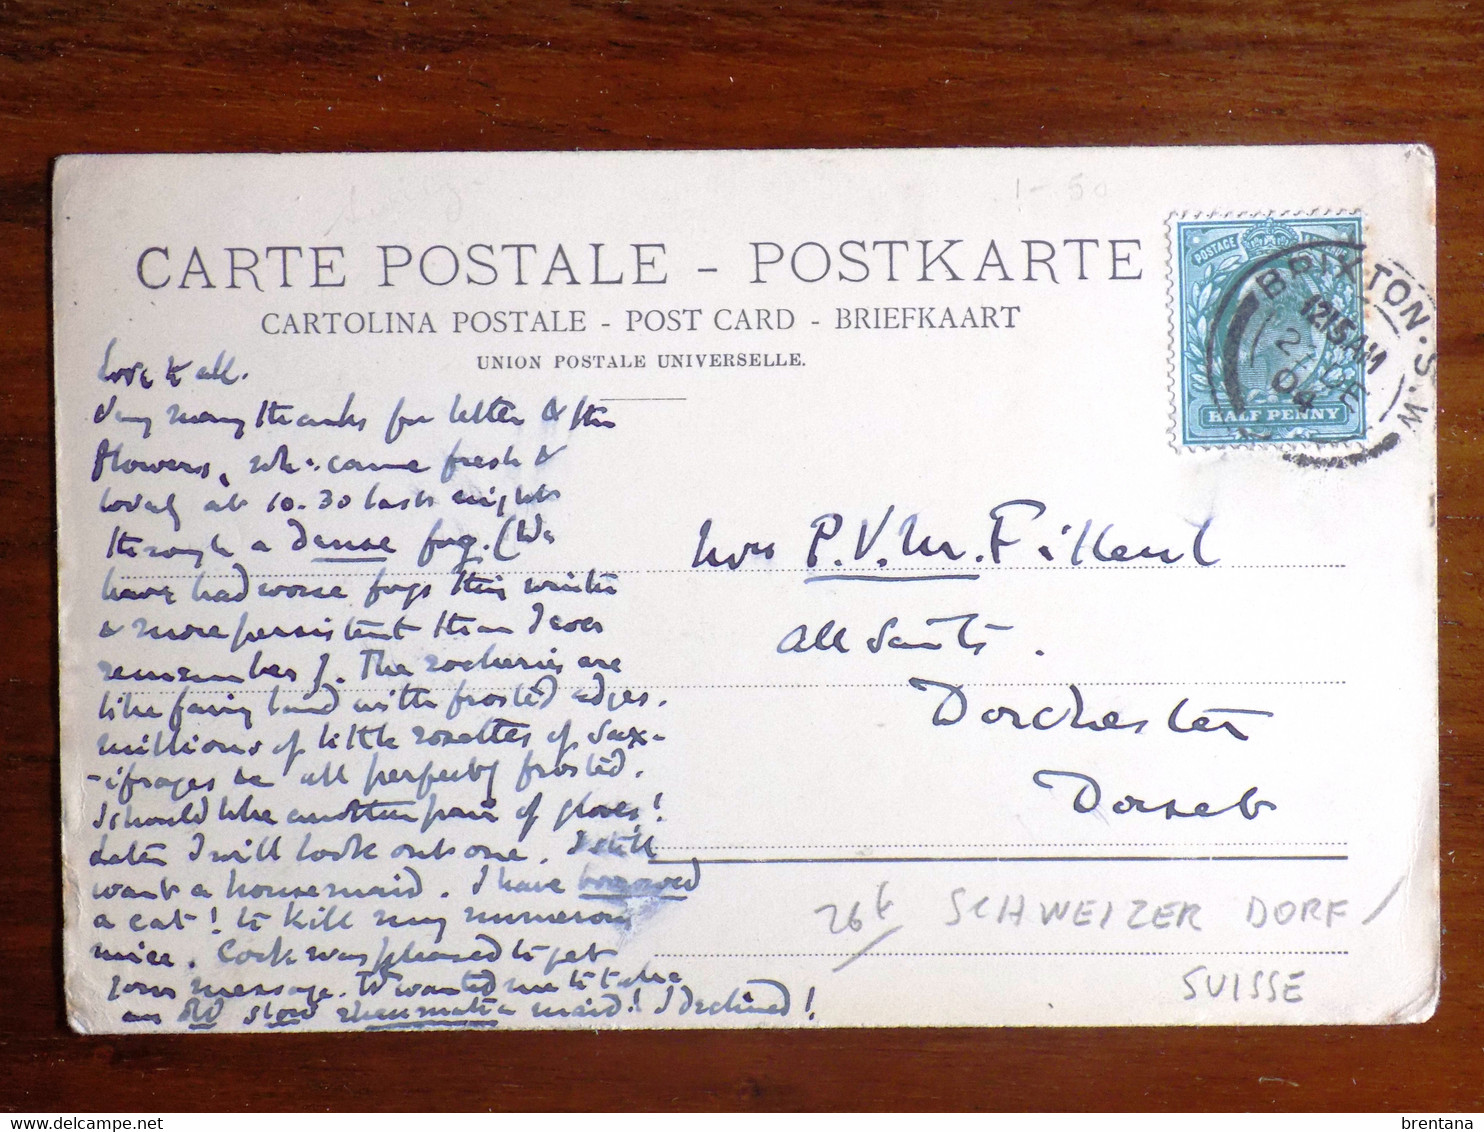 CARTE POSTALE - POSTKARTE
CARTOLINA POSTALE - POST CARD - BRIEFKAART
UNION POSTALE UNIVERSELLE.
POSTAGE
HALF PENNY
BRIXTON. S.W.
12 15 AM
21 DE
04
Love to all.
Very many thanks for letter & the
flowers, wh: came fresh &
lovely at 10.30 last night
through a dense fog. (We
have had worse fogs this winter
& more persistent than I ever
remember). The rockeries are
like fairy land with frosted edges.
millions of little rosettes of Sax-
-ifrages &c all perfectly frosted.
I should like another pair of gloves!
Later I will look out one. I still
want a housemaid. I have borrowed
a cat! to kill my numerous
mice. Cook was pleased to get
your message. wanted me to take
an old slow rheumatic maid! I declined!
Mrs P. V. M. Filleul
All Saints.
Dorchester
Dorset
26 SCHWEIZER DORF/
SUISSE
1-50
brentana